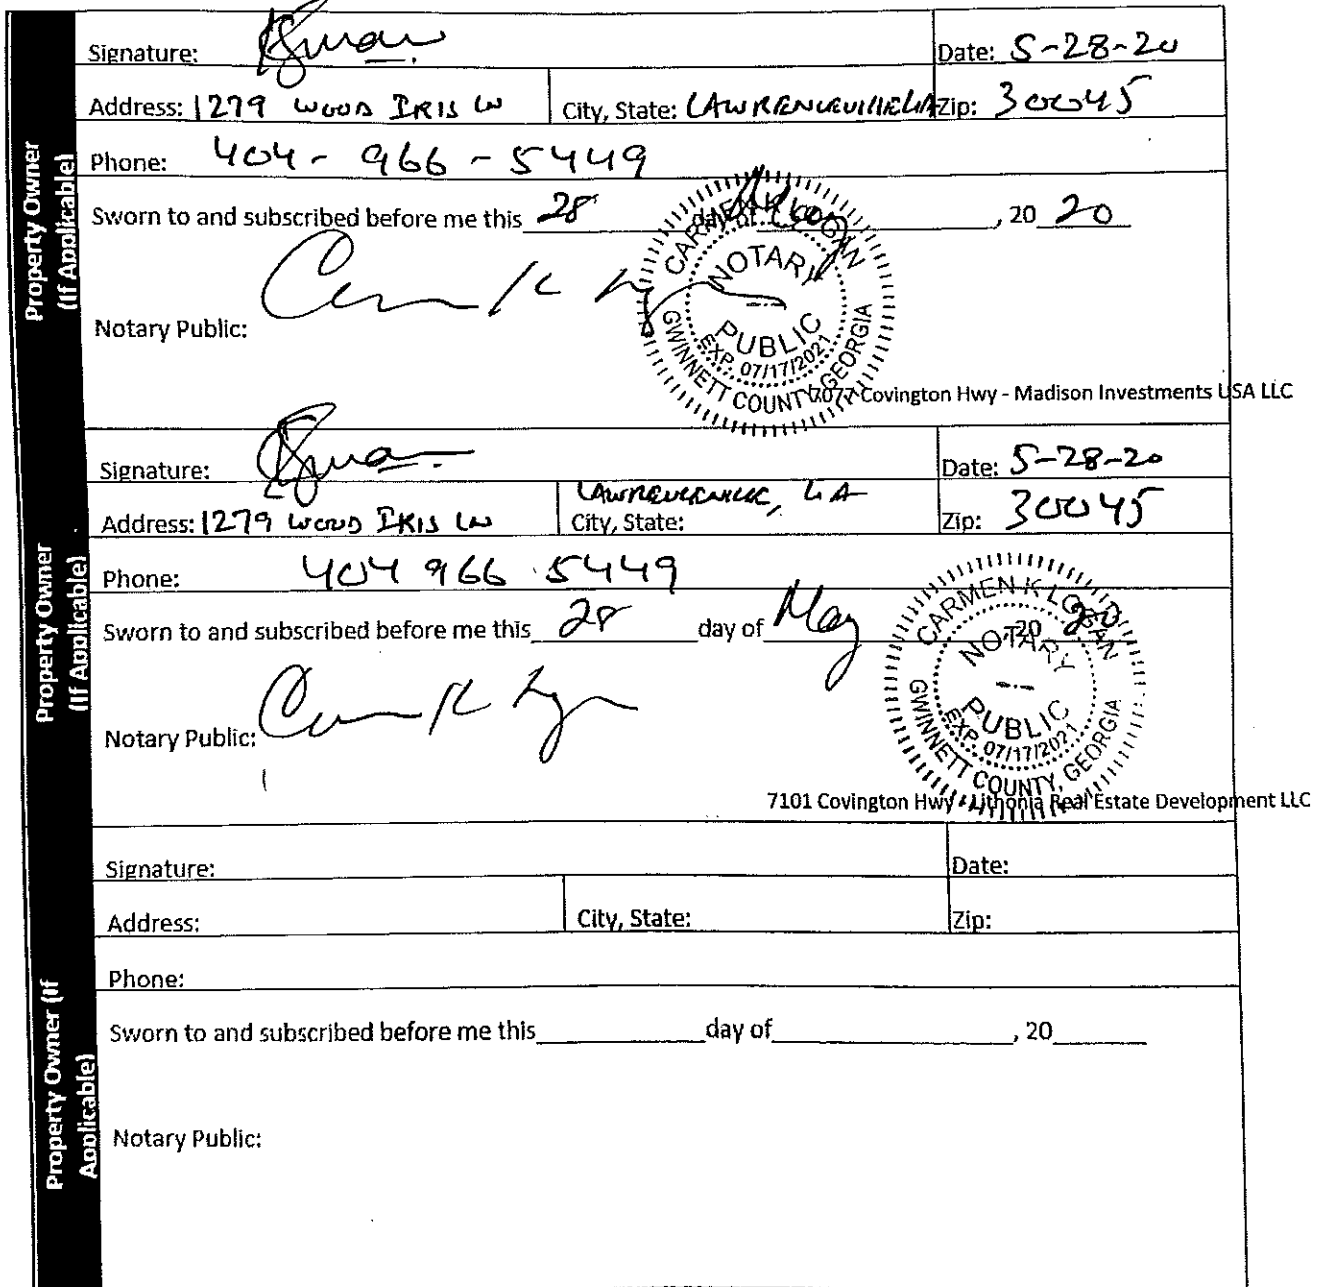 Property Owner
(If Applicable)
Signature:
Date: 5-28-20
Address: 1279 WOOD IRIS LN
City, State: LAWRENCEVILLE GA
Zip: 30045
Phone: 404-966-5449
Sworn to and subscribed before me this 28 day of May, 20 20
Notary Public:
CARMEN K LOGAN
NOTARY
PUBLIC
EXP. 07/17/2021
GWINNETT COUNTY, GEORGIA
7077 Covington Hwy - Madison Investments USA LLC
Property Owner
(If Applicable)
Signature:
Date: 5-28-20
Address: 1279 WOOD IRIS LN
LAWRENCEVILLE, GA
City, State:
Zip: 30045
Phone: 404 966 5449
Sworn to and subscribed before me this 28 day of May, 20 20
Notary Public:
CARMEN K LOGAN
NOTARY
PUBLIC
EXP. 07/17/2021
GWINNETT COUNTY, GEORGIA
7101 Covington Hwy - Lithonia Real Estate Development LLC
Property Owner (If
Applicable)
Signature:
Date:
Address:
City, State:
Zip:
Phone:
Sworn to and subscribed before me this day of , 20
Notary Public: